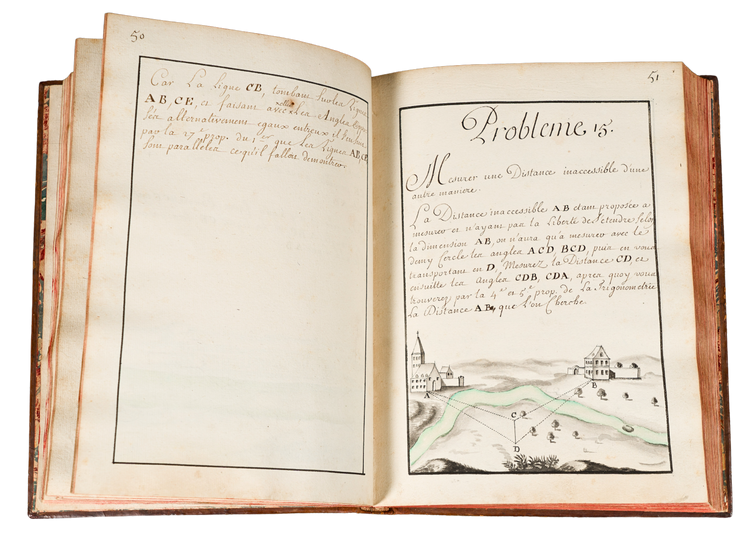 50
Car La Ligne CB, tombant sur les Lignes
AB, CE, et faisant avec elles les Angles
alternativement egaux entreux il s'en
par la 27.e prop. du 1.er que Les Lignes AB, CE,
sont paralleles ce qu'il falloit demontrer.
51
Probleme 15.
Mesurer une Distance inaccessible d'une
autre maniere.
La Distance inaccessible AB etant proposée a
mesurer et n'ayant pas la Liberté de s'etendre selon
la dimension AB, on n'aura qu'a mesurer avec le
demy Cercle les angles ACD, BCD, puis en vous
transportant en D, Mesurez la Distance CD, et
ensuitte les Angles CDB, CDA, apres quoy vous
trouverez par la 4.e et 5.e prop. de La Trigonometrie
La Distance AB, que l'on Cherche.
A
B
C
D